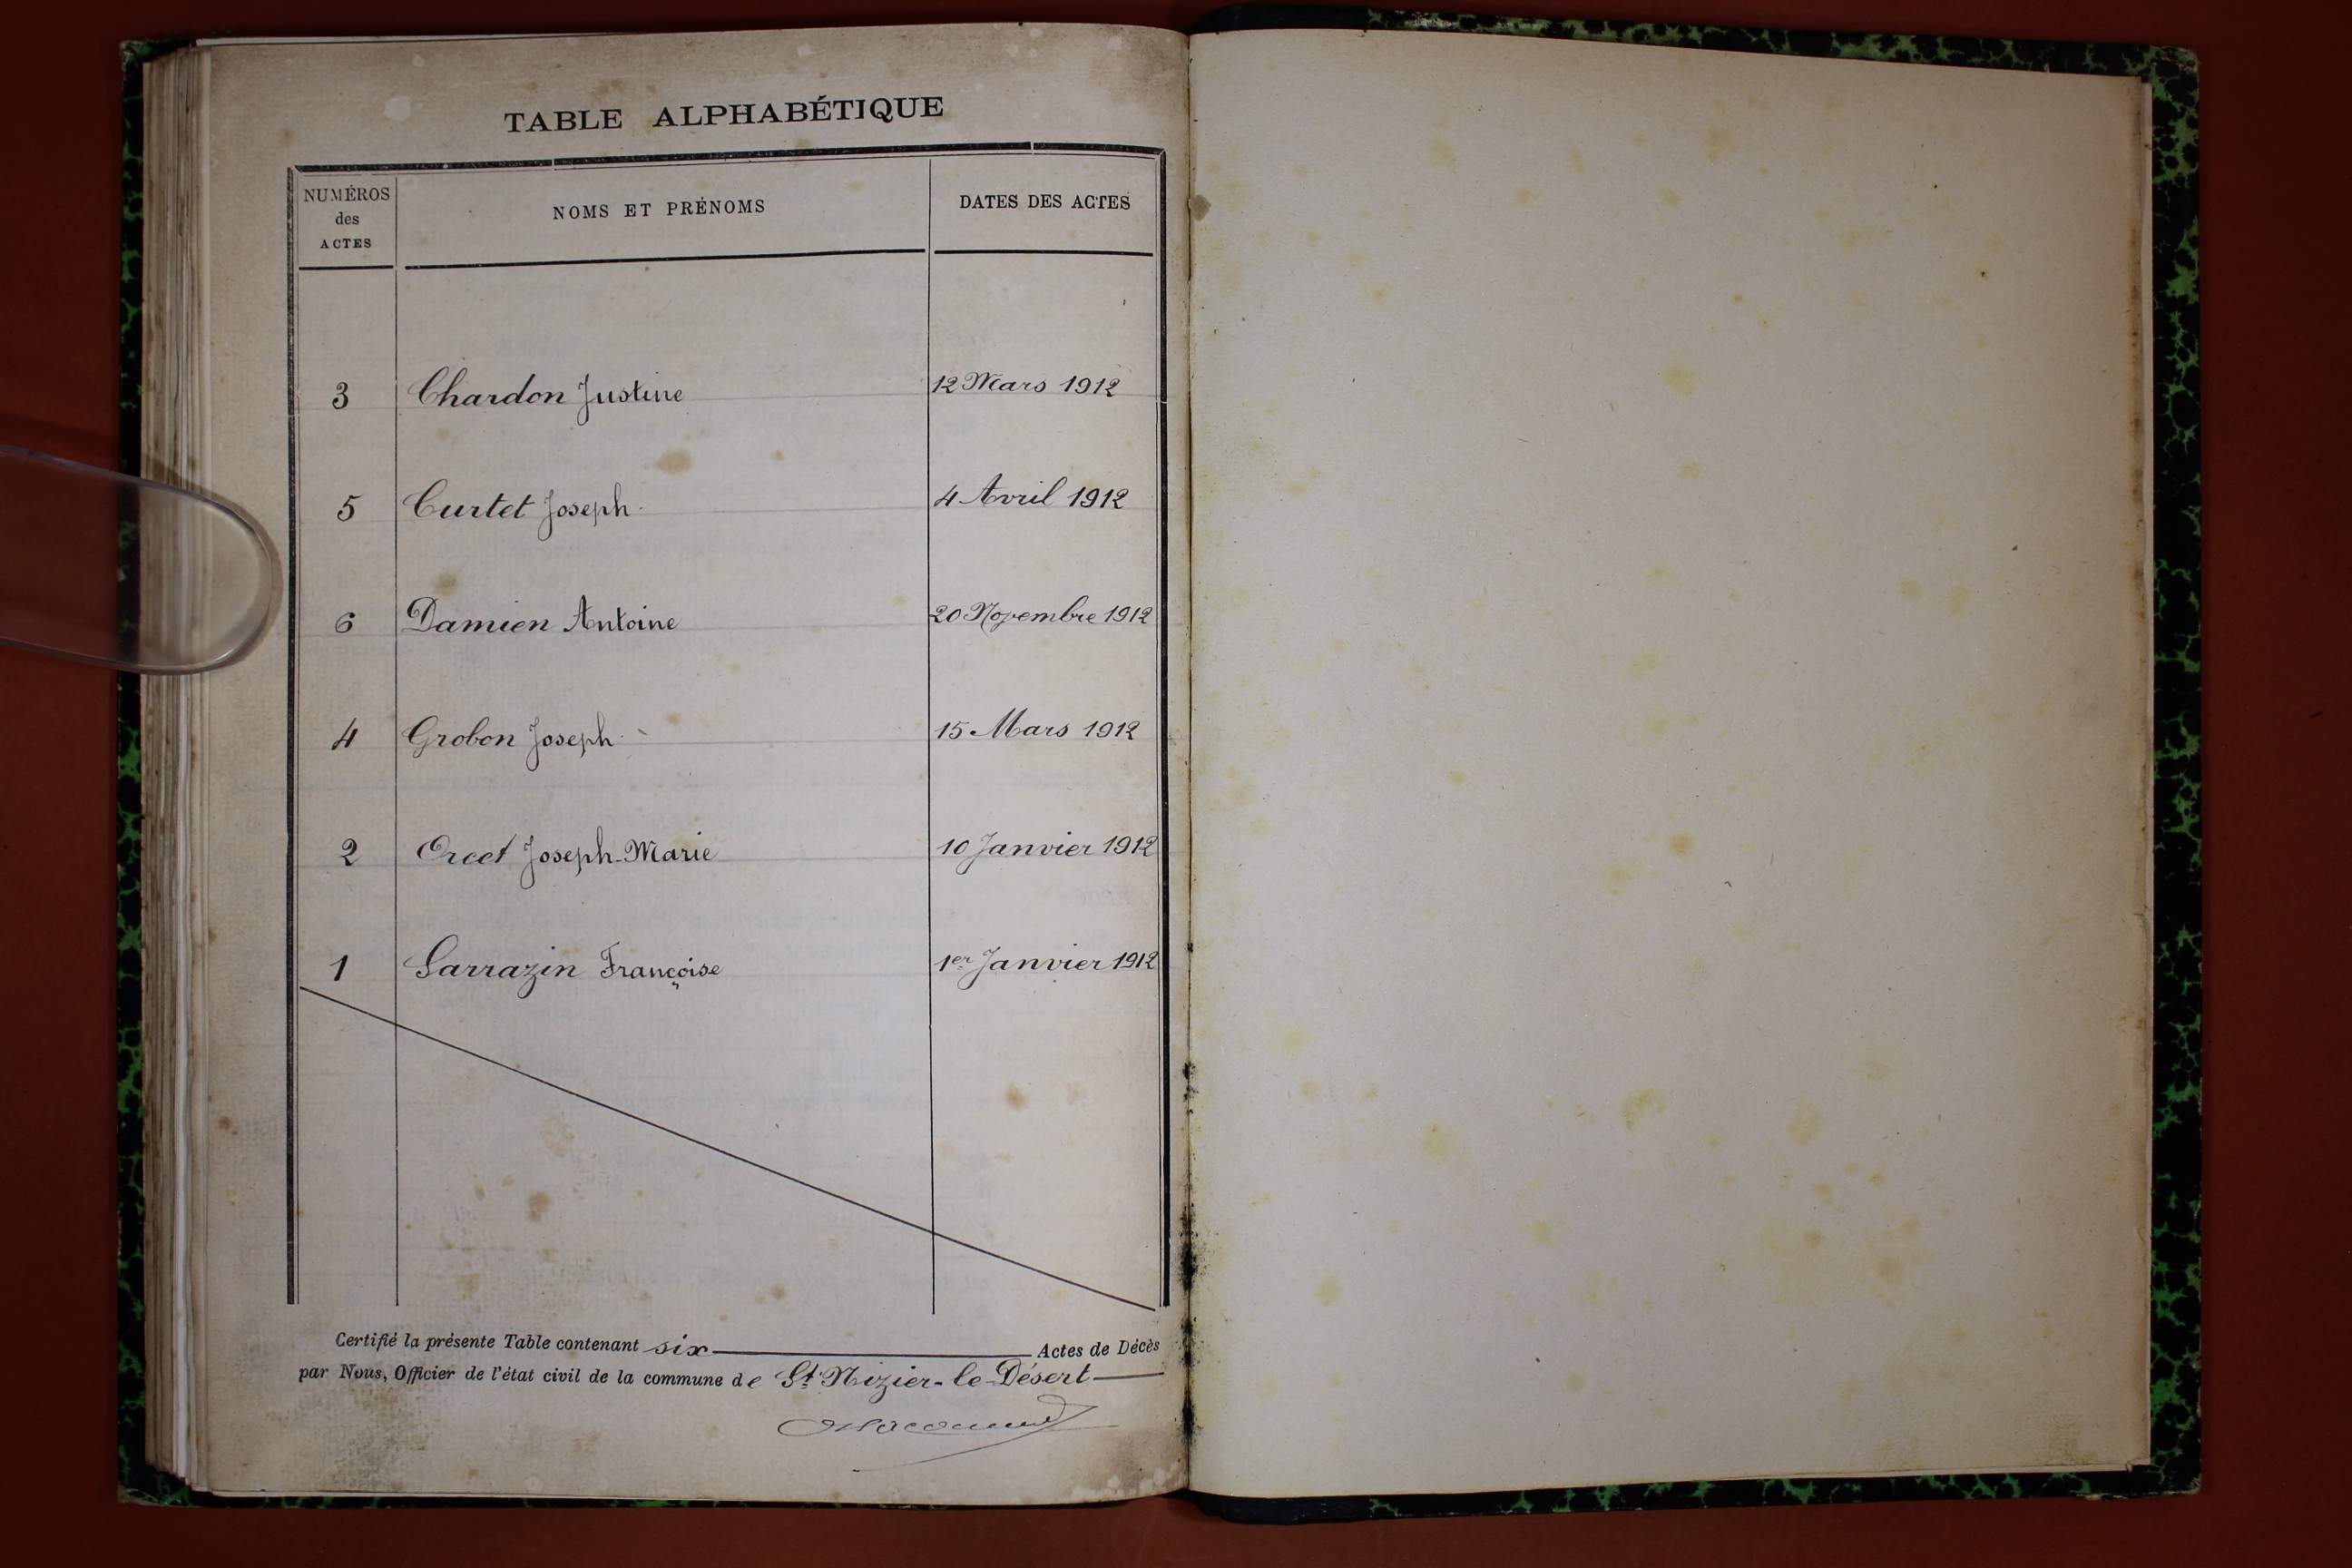 TABLE ALPHABÉTIQUE
NUMÉROS
des
ACTES
NOMS ET PRÉNOMS
DATES DES ACTES
3 Chardon Justine 12 Mars 1912
5 Curtet Joseph 4 Avril 1912
6 Damien Antoine 20 Novembre 1912
4 Grobon Joseph 15 Mars 1912
2 Orcet Joseph-Marie 10 Janvier 1912
1 Sarrazin Françoise 1er Janvier 1912
Certifié la présente Table contenant six Actes de Décès
par Nous, Officier de l'état civil de la commune de St Nizier-le-Désert